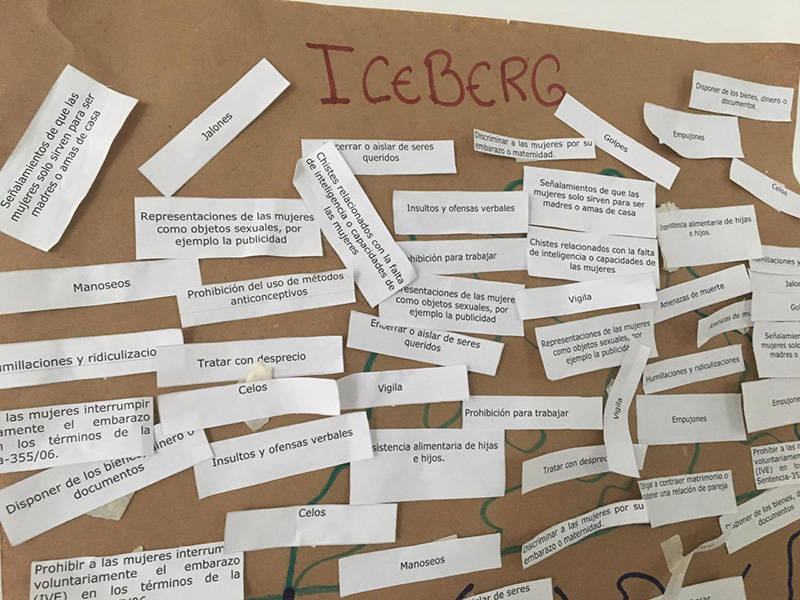 ICEBERG
Señalamientos de que las
mujeres solo sirven para ser
madres o amas de casa
Jalones
cerrar o aislar de seres
queridos
Chistes relacionados con la falta
de inteligencia o capacidades de
las mujeres
Discriminar a las mujeres por su
embarazo o maternidad.
Golpes
Empujones
Disponer de los bienes, dinero o
documentos
Celos
Representaciones de las mujeres
como objetos sexuales, por
ejemplo la publicidad
Insultos y ofensas verbales
Señalamientos de que las
mujeres solo sirven para ser
madres o amas de casa
nsistencia alimentaria de hijas
e hijos.
Manoseos
Prohibición del uso de métodos
anticonceptivos
ohibición para trabajar
Chistes relacionados con la falta
de inteligencia o capacidades de
las mujeres
umillaciones y
Jalo
Go
resentaciones de las mujeres
como objetos sexuales, por
ejemplo la publicidad
Vigila
Amenazas de muerte
Amenazas de mu
umillaciones y ridiculizacio
Tratar con desprecio
Encerrar o aislar de seres
queridos
Representaciones de las mujeres
como objetos sexuales, por
ejemplo la publicidad
Señalamiento
mujeres solo
madres o a
Humillaciones y ridiculizaciones
Celos
Vigila
Prohibición para trabajar
Vigila
Empujones
Empujone
las mujeres interrumpir
amente el embarazo
n los términos de la
a-355/06.
Disponer de los bienes, dinero o
documentos
Insultos y ofensas verbales
sistencia alimentaria de hijas
e hijos.
Tratar con desprec
Prohibir a las m
voluntariamente
(IVE) en los
Sentencia-35
gar a contraer matrimonio o
tener una relación de pareja
Celos
Discriminar a las mujeres por su
embarazo o maternidad.
Disponer de los bienes, d
documentos
Manoseos
Prohibir a las mujeres interrum
voluntariamente el embarazo
(IVE) en los términos de la
Encerrar o aislar de seres